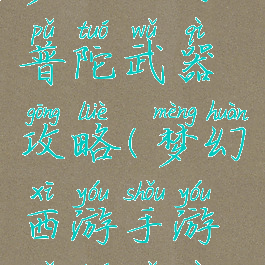 pǔ tuó wǔ qì
普陀武器
gōng lüè mèng huàn
攻略(梦幻
xī yóu shǒu yóu
西游手游